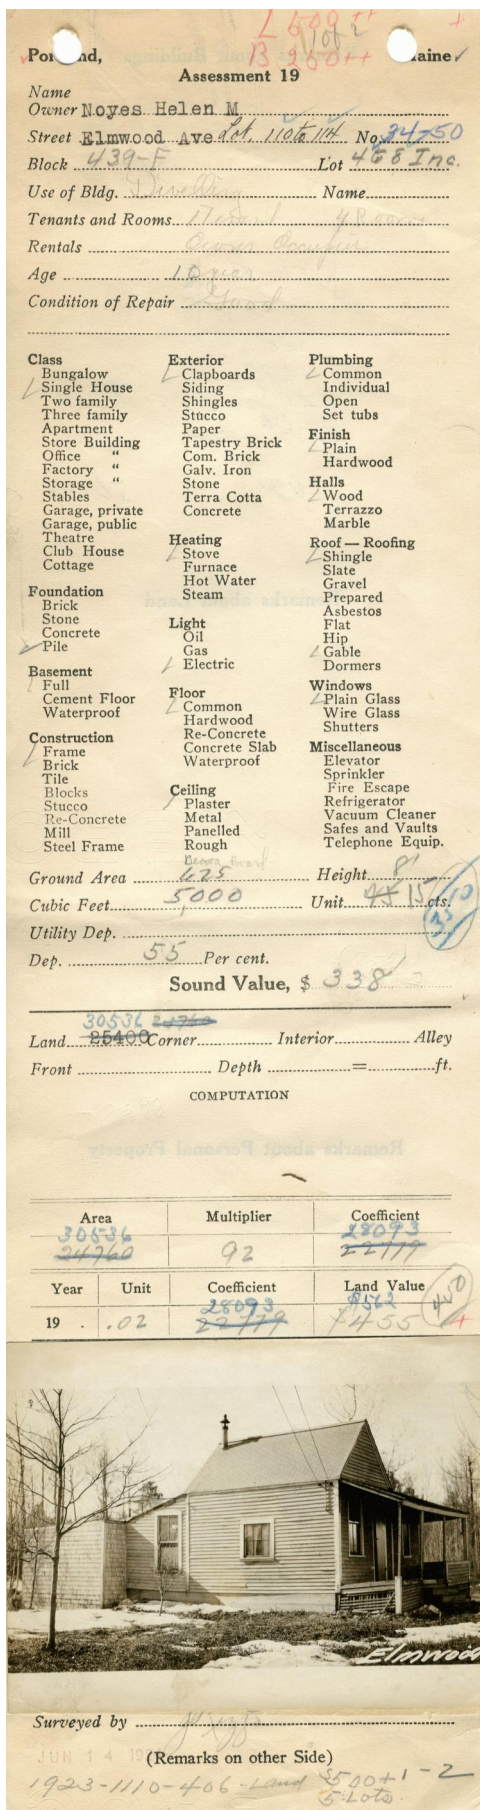 L 500 ++
1 of 2
B 250 ++
Portland, Maine
Assessment 19
Name
Owner Noyes Helen M
Street Elmwood Ave Lot. 110 to 114 No. 34-50
Block 439-F Lot 4 5 8 Inc.
Use of Bldg. Dwelling Name
Tenants and Rooms 1 Tenant 4 Rooms
Rentals Owner Occupies
Age 10 years
Condition of Repair Good
Class
Bungalow
Single House
Two family
Three family
Apartment
Store Building
Office "
Factory "
Storage "
Stables
Garage, private
Garage, public
Theatre
Club House
Cottage
Foundation
Brick
Stone
Concrete
Pile
Basement
Full
Cement Floor
Waterproof
Construction
Frame
Brick
Tile
Blocks
Stucco
Re-Concrete
Mill
Steel Frame
Exterior
Clapboards
Siding
Shingles
Stucco
Paper
Tapestry Brick
Com. Brick
Galv. Iron
Stone
Terra Cotta
Concrete
Heating
Stove
Furnace
Hot Water
Steam
Light
Oil
Gas
Electric
Floor
Common
Hardwood
Re-Concrete
Concrete Slab
Waterproof
Ceiling
Plaster
Metal
Panelled
Rough
Beaver Board
Plumbing
Common
Individual
Open
Set tubs
Finish
Plain
Hardwood
Halls
Wood
Terrazzo
Marble
Roof — Roofing
Shingle
Slate
Gravel
Prepared
Asbestos
Flat
Hip
Gable
Dormers
Windows
Plain Glass
Wire Glass
Shutters
Miscellaneous
Elevator
Sprinkler
Fire Escape
Refrigerator
Vacuum Cleaner
Safes and Vaults
Telephone Equip.
Ground Area 625 Height 8'
Cubic Feet 5,000 Unit 45 15 cts.
10
35
Utility Dep.
Dep. 55 Per cent.
Sound Value, $ 338
30536 24760
Land 25400 Corner Interior Alley
Front Depth = ft.
COMPUTATION
Area Multiplier Coefficient
30536 28093
24760 92 22779
Year Unit Coefficient Land Value
28093 $562 450
19 . .02 22779 $455 +
Elmwood
Surveyed by
JUN 14 19
(Remarks on other Side)
1923-1110-406-Land $500 + 1-2
5 Lots